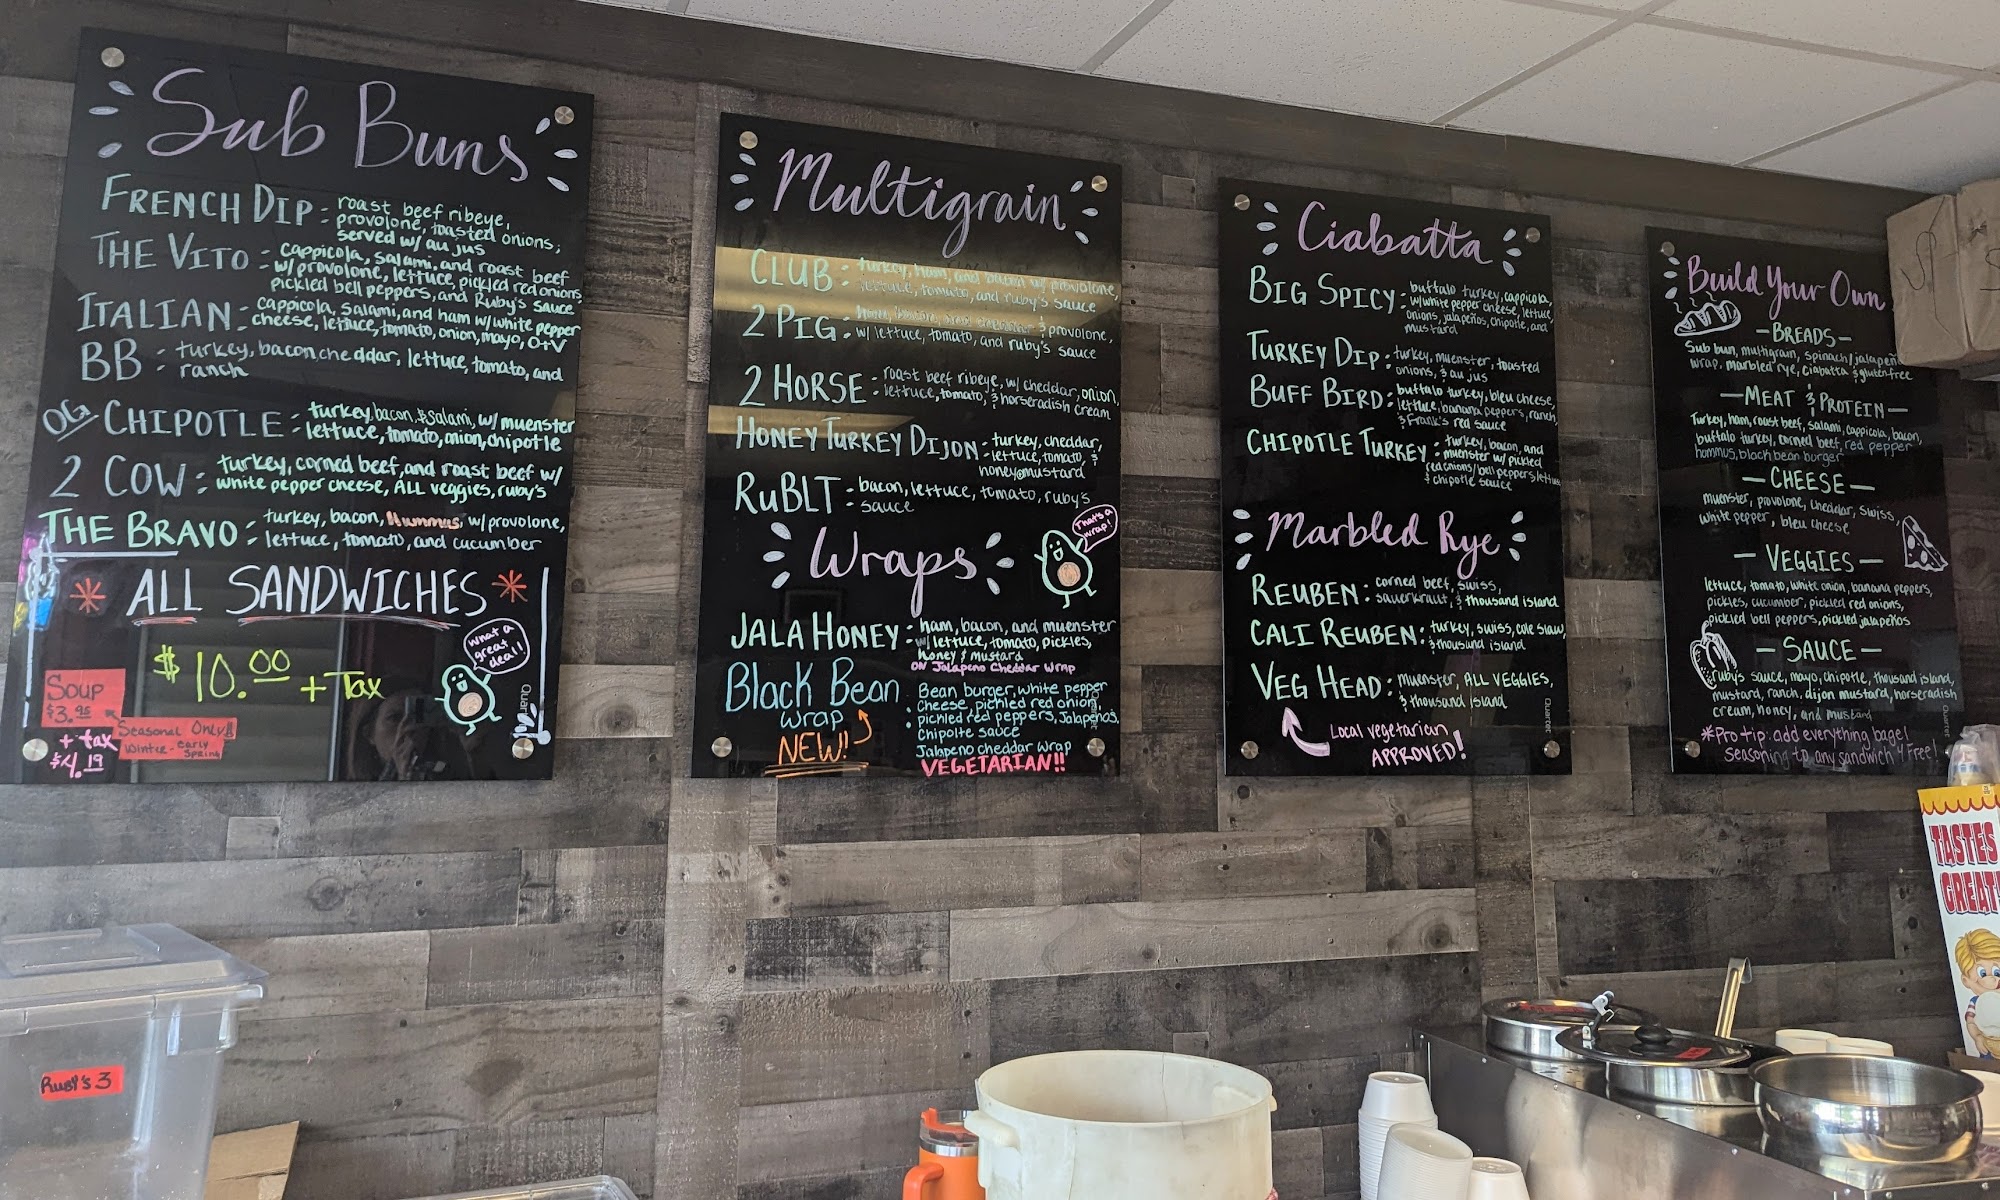 Sub Buns
FRENCH DIP - roast beef ribeye,
provolone, toasted onions,
served w/ au jus
THE VITO - cappicola, salami, and roast beef
w/ provolone, lettuce, pickled red onions
pickled bell peppers, and Ruby's sauce
ITALIAN - cappicola, salami, and ham w/ white pepper
cheese, lettuce, tomato, onion, mayo, O+V
BB - turkey, bacon, cheddar, lettuce, tomato, and
ranch
OG CHIPOTLE - turkey, bacon, & salami, w/ muenster
lettuce, tomato, onion, chipotle
2 COW : turkey, corned beef, and roast beef w/
white pepper cheese, ALL veggies, ruby's
THE BRAVO : turkey, bacon, Hummus, w/ provolone,
lettuce, tomato, and cucumber
* ALL SANDWICHES *
$10.00 + Tax
what a
great
deal!!
SOUP
$3.95
+ tax
$4.19
Seasonal Only!!
Winter - early
Spring
Quartet
Multigrain
CLUB : turkey, ham, and bacon w/ provolone,
lettuce, tomato, and ruby's sauce
2 PIG : & provolone,
w/ lettuce, tomato, and ruby's sauce
2 HORSE : roast beef ribeye, w/ cheddar, onion,
lettuce, tomato, & horseradish cream
HONEY TURKEY DIJON - turkey, cheddar,
lettuce, tomato, &
honey mustard
RuBLT : bacon, lettuce, tomato, ruby's
sauce
Wraps
That's a
wrap!
JALA HONEY : ham, bacon, and muenster
w/ lettuce, tomato, pickles,
honey & mustard
ON Jalapeno Cheddar wrap
Black Bean
wrap
NEW!
Bean burger, white pepper
Cheese, pickled red onion
pickled red peppers, Jalapeños,
Chipolte sauce
Jalapeno cheddar wrap
VEGETARIAN!!
Ciabatta
BIG SPICY - buffalo turkey, cappicola,
w/ white pepper cheese, lettuce
onions, jalapeños, chipotle, and
mustard
TURKEY DIP : turkey, muenster, toasted
onions, & au jus
BUFF BIRD : buffalo turkey, bleu cheese,
lettuce, banana peppers, ranch,
& Frank's red sauce
CHIPOTLE TURKEY - turkey, bacon, and
muenster w/ pickled
red onions/ bell peppers, lettuce
& chipotle sauce
Marbled Rye
REUBEN : corned beef, swiss,
sauerkraut, & thousand island
CALI REUBEN : turkey, swiss, cole slaw,
& thousand island
VEG HEAD : muenster, ALL VEGGIES,
& thousand island
Local vegetarian
APPROVED!
Quartet
Build Your Own
- BREADS -
Sub bun, multigrain, spinach/jalapeñ
wrap, marbled rye, ciabatta & gluten free
- MEAT & PROTEIN -
Turkey, ham, roast beef, salami, cappicola, bacon,
buffalo turkey, corned beef, red pepper
hommus, black bean burger
- CHEESE -
muenster, provolone, cheddar, swiss,
white pepper, bleu cheese
- VEGGIES -
lettuce, tomato, white onion, banana peppers,
pickles, cucumber, pickled red onions,
pickled bell peppers, pickled jalapeños
- SAUCE -
ruby's sauce, mayo, chipotle, thousand island,
mustard, ranch, dijon mustard, horseradish
cream, honey, and mustard
*Pro tip: add everything bagel
Seasoning to any sandwich 4 Free!
Quartet
TASTES
GREAT
RUBY'S 3